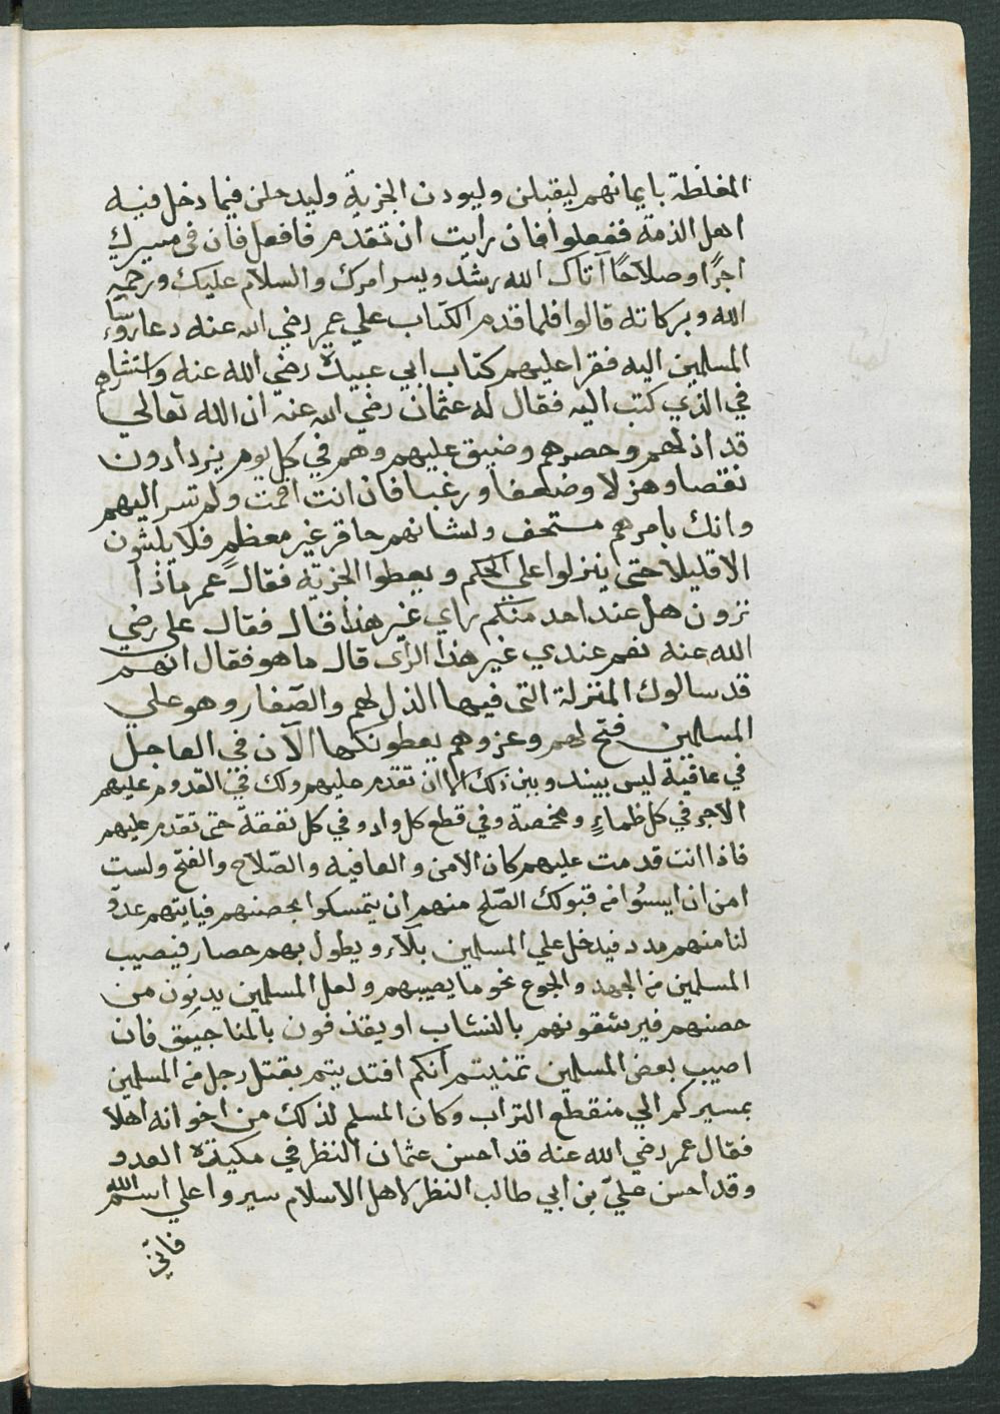 المغلظة بايمانهم ليقبلن وليودن الجزية وليدخلن فيما دخل فيه
اهل الذمة ففعلوا فان رايت ان تقدم فافعل فان في مسيرك
اجرًا وصلاحًا آتاك الله رشدك ويسر امرك والسلام عليك ورحمة
الله وبركاته قالوا فلما قدم الكتاب علي عمر رضي الله عنه دعا رؤساء
المسلمين اليه فقرا عليهم كتاب ابي عبيدة رضي الله عنه واستشارهم
في الذي كتب اليه فقال له عثمان رضي الله عنه ان الله تعالي
قد اذلهم وحصرهم وضيق عليهم وهم في كل يوم يزدادون
نقصا وهزلا وضعفا ورغبا فان انت اقمت ولم تسر اليهم
وانك بامرهم مستخف ولشانهم حاقر غير معظم فلا يلبثون
الا قليلا حتى ينزلوا علي الحكم ويعطوا الجزية فقال عمر ماذا
ترون هل عند احد منكم راي غير هذا قال فقال علي رضي
الله عنه نعم عندي غير هذا الراى قال ما هو فقال انهم
قد سالوك المنزلة التى فيها الذل لهم والصّغار وهو علي
المسلمين فتح لهم وعز وهم يعطونكها الآن في العاجل
في عافية ليس بينك وبين ذلك الا ان تقدم عليهم ولك في القدوم عليهم
الاجر في كل ظماءٍ ومخمصة وفي قطع كل واد وفي كل نفقة حتى تقدم عليهم
فاذا انت قدمت عليهم كان الامن والعافيه والصّلاح والفتح ولست
امن ان ايسُوا من قبولك الصّلح منهم ان يتمسكوا بحصنهم فياتيهم عدوّ
لنا منهم مدد فيدخل علي المسلمين بلآء ويطول بهم حصار فيصيب
المسلمين من الجهد والجوع نحو ما يصيبهم ولعل المسلمين يدنون من
حصنهم فيرشقونهم بالنشاب او يقذفون بالمناجيق فان
اصيب بعض المسلمين تمنيتم أنكم افتديتم بقتل رجل من المسلمين
بمسيركم الي منقطع التراب وكان المسلم لذلك من اخوانه اهلا
فقال عمر رضي الله عنه قد احسن عثمان النظر في مكيدة العدو
وقد احسن عليّ بن ابي طالب النظر لاهل الاسلام سيروا علي اسم الله
فانّي